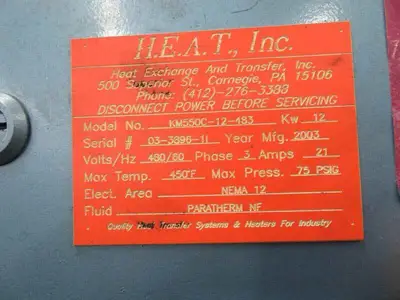 H.E.A.T., Inc.
Heat Exchange And Transfer, Inc.
500 Superior St., Carnegie, PA 15106
Phone: (412)-276-3388
DISCONNECT POWER BEFORE SERVICING
Model No. KM550C-12-483 Kw 12
Serial # 03-3896-11 Year Mfg. 2003
Volts/Hz 480/60 Phase 3 Amps 21
Max Temp. 450°F Max Press. 75 PSIG
Elect. Area NEMA 12
Fluid PARATHERM NF
Quality Heat Transfer Systems & Heaters For Industry